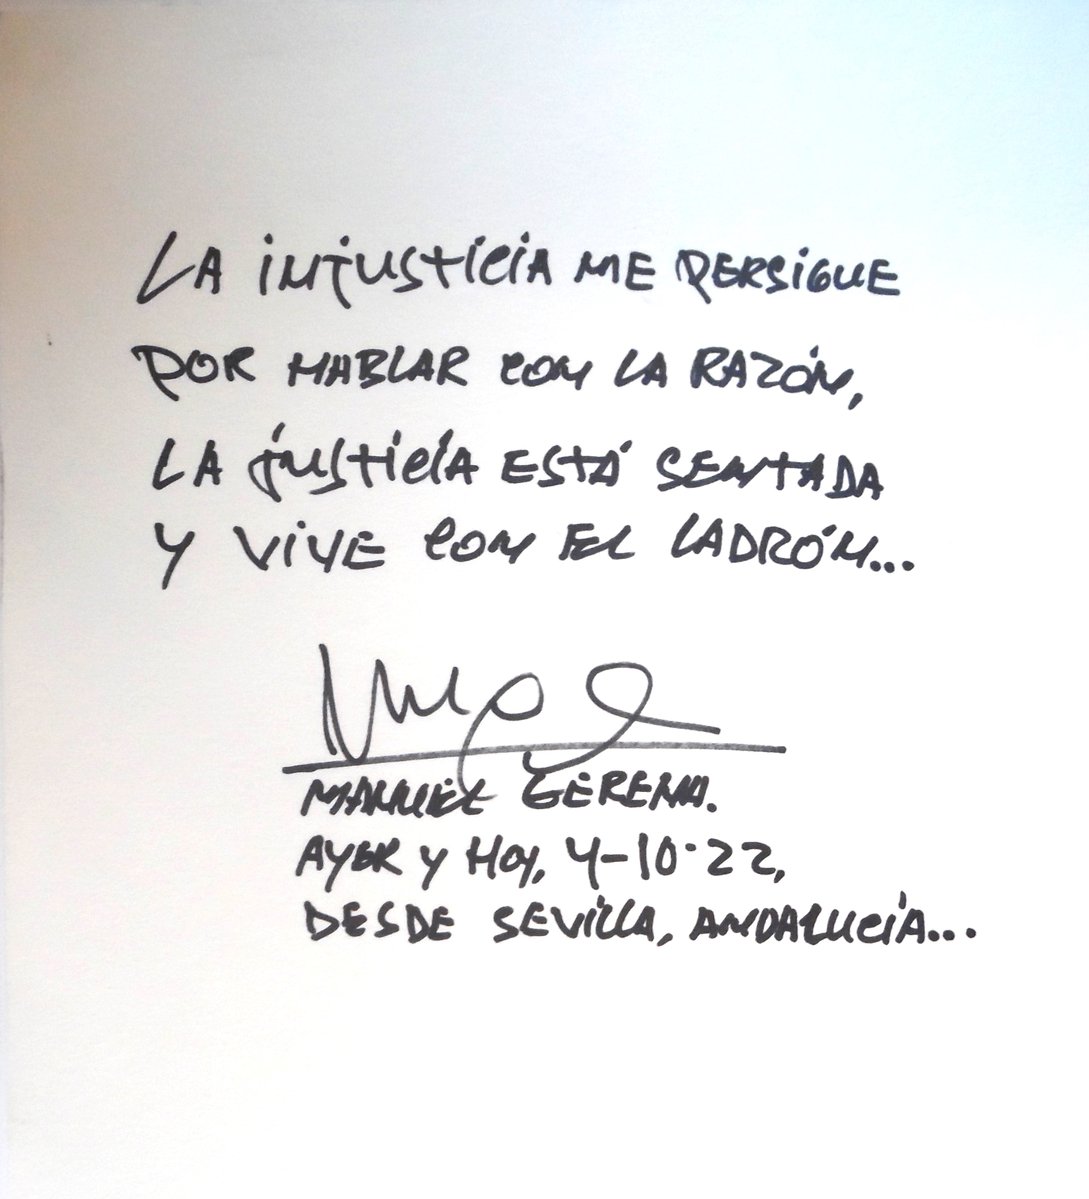 LA iNjusticia ME PERSiGUE
POR HABLAR CON LA RAZÓN,
LA justicia ESTÁ SENTADA
Y ViVE CON EL LADRÓN...
MANUEL GERENA.
AYER Y HOY, 4-10-22,
DESDE SEViLLA, ANDALUCÍA...